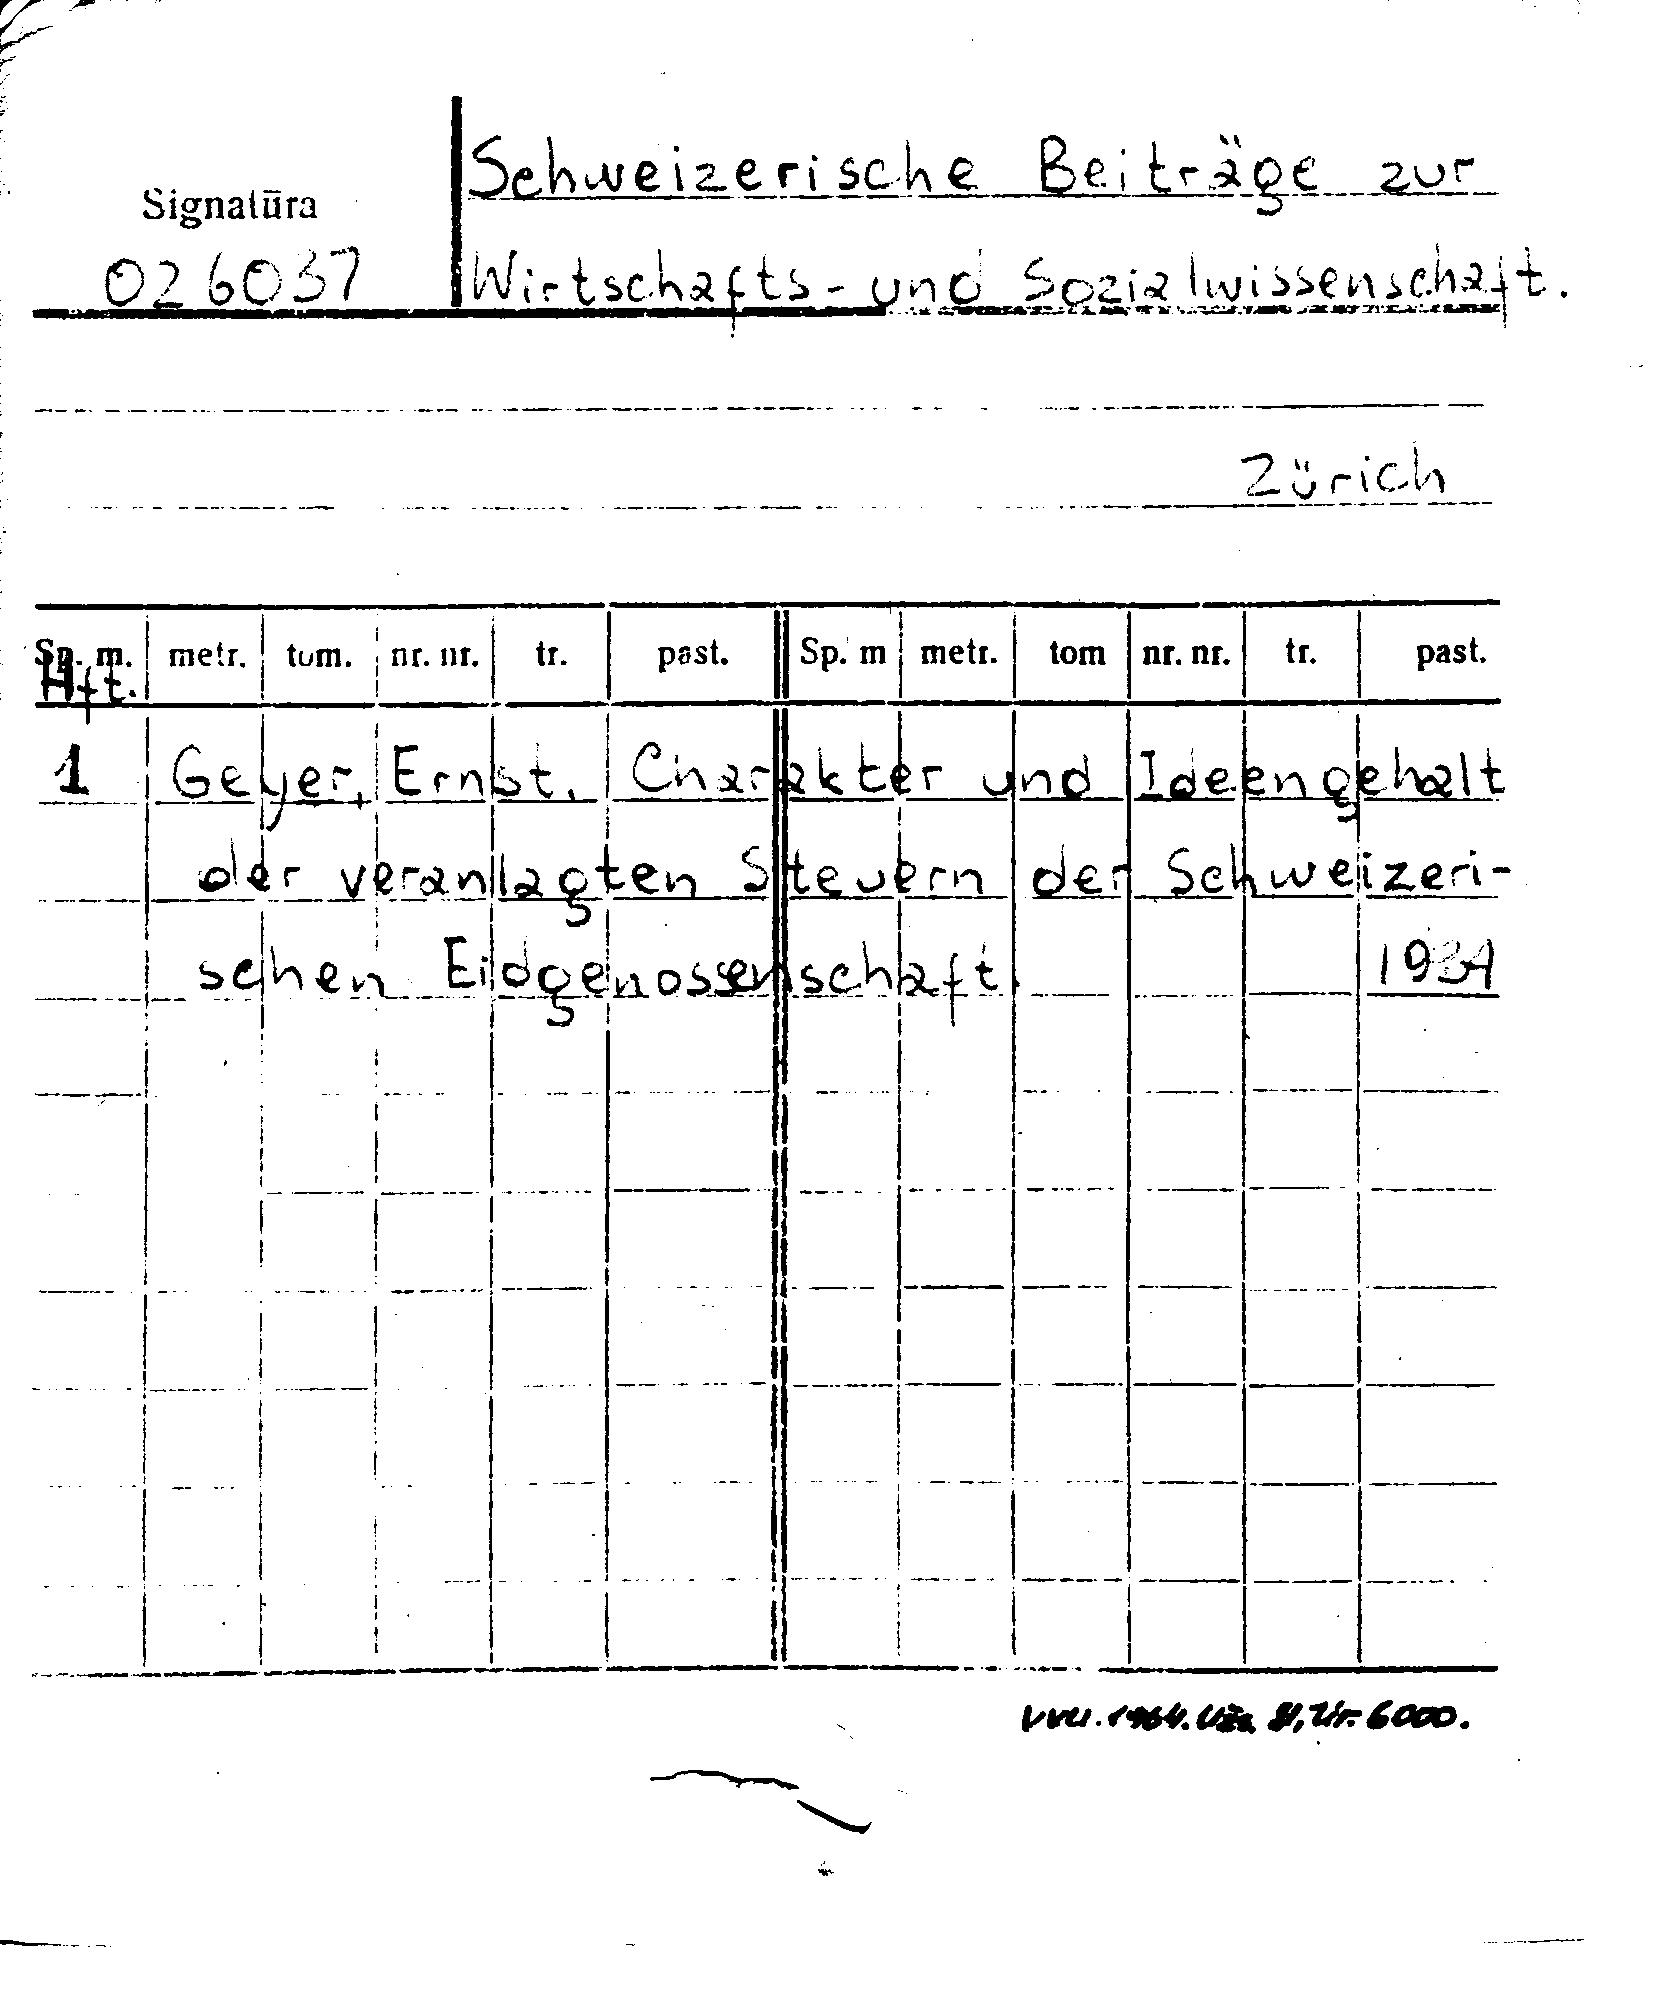 Schweizerische Beiträge zur
Signatūra
026037
Wirtschafts- und Sozialwissenschaft.
Zürich
Sp. m. metr. tom. nr. nr. tr. past. Sp. m metr. tom nr. nr. tr. past.
Hft.
1 Geyer, Ernst. Charakter und Ideengehalt
der veranlagten Steuern der Schweizeri-
schen Eidgenossenschaft. 1934
VVU. 1964. Užs. Tir. 6000.